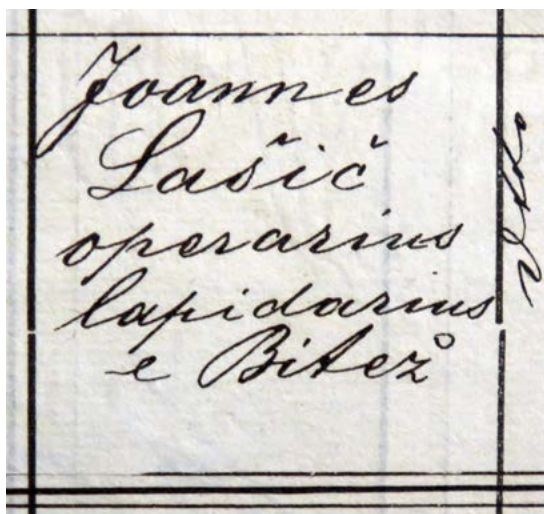 Joannes
Lašič
operarius
lapidarius
e Bitež